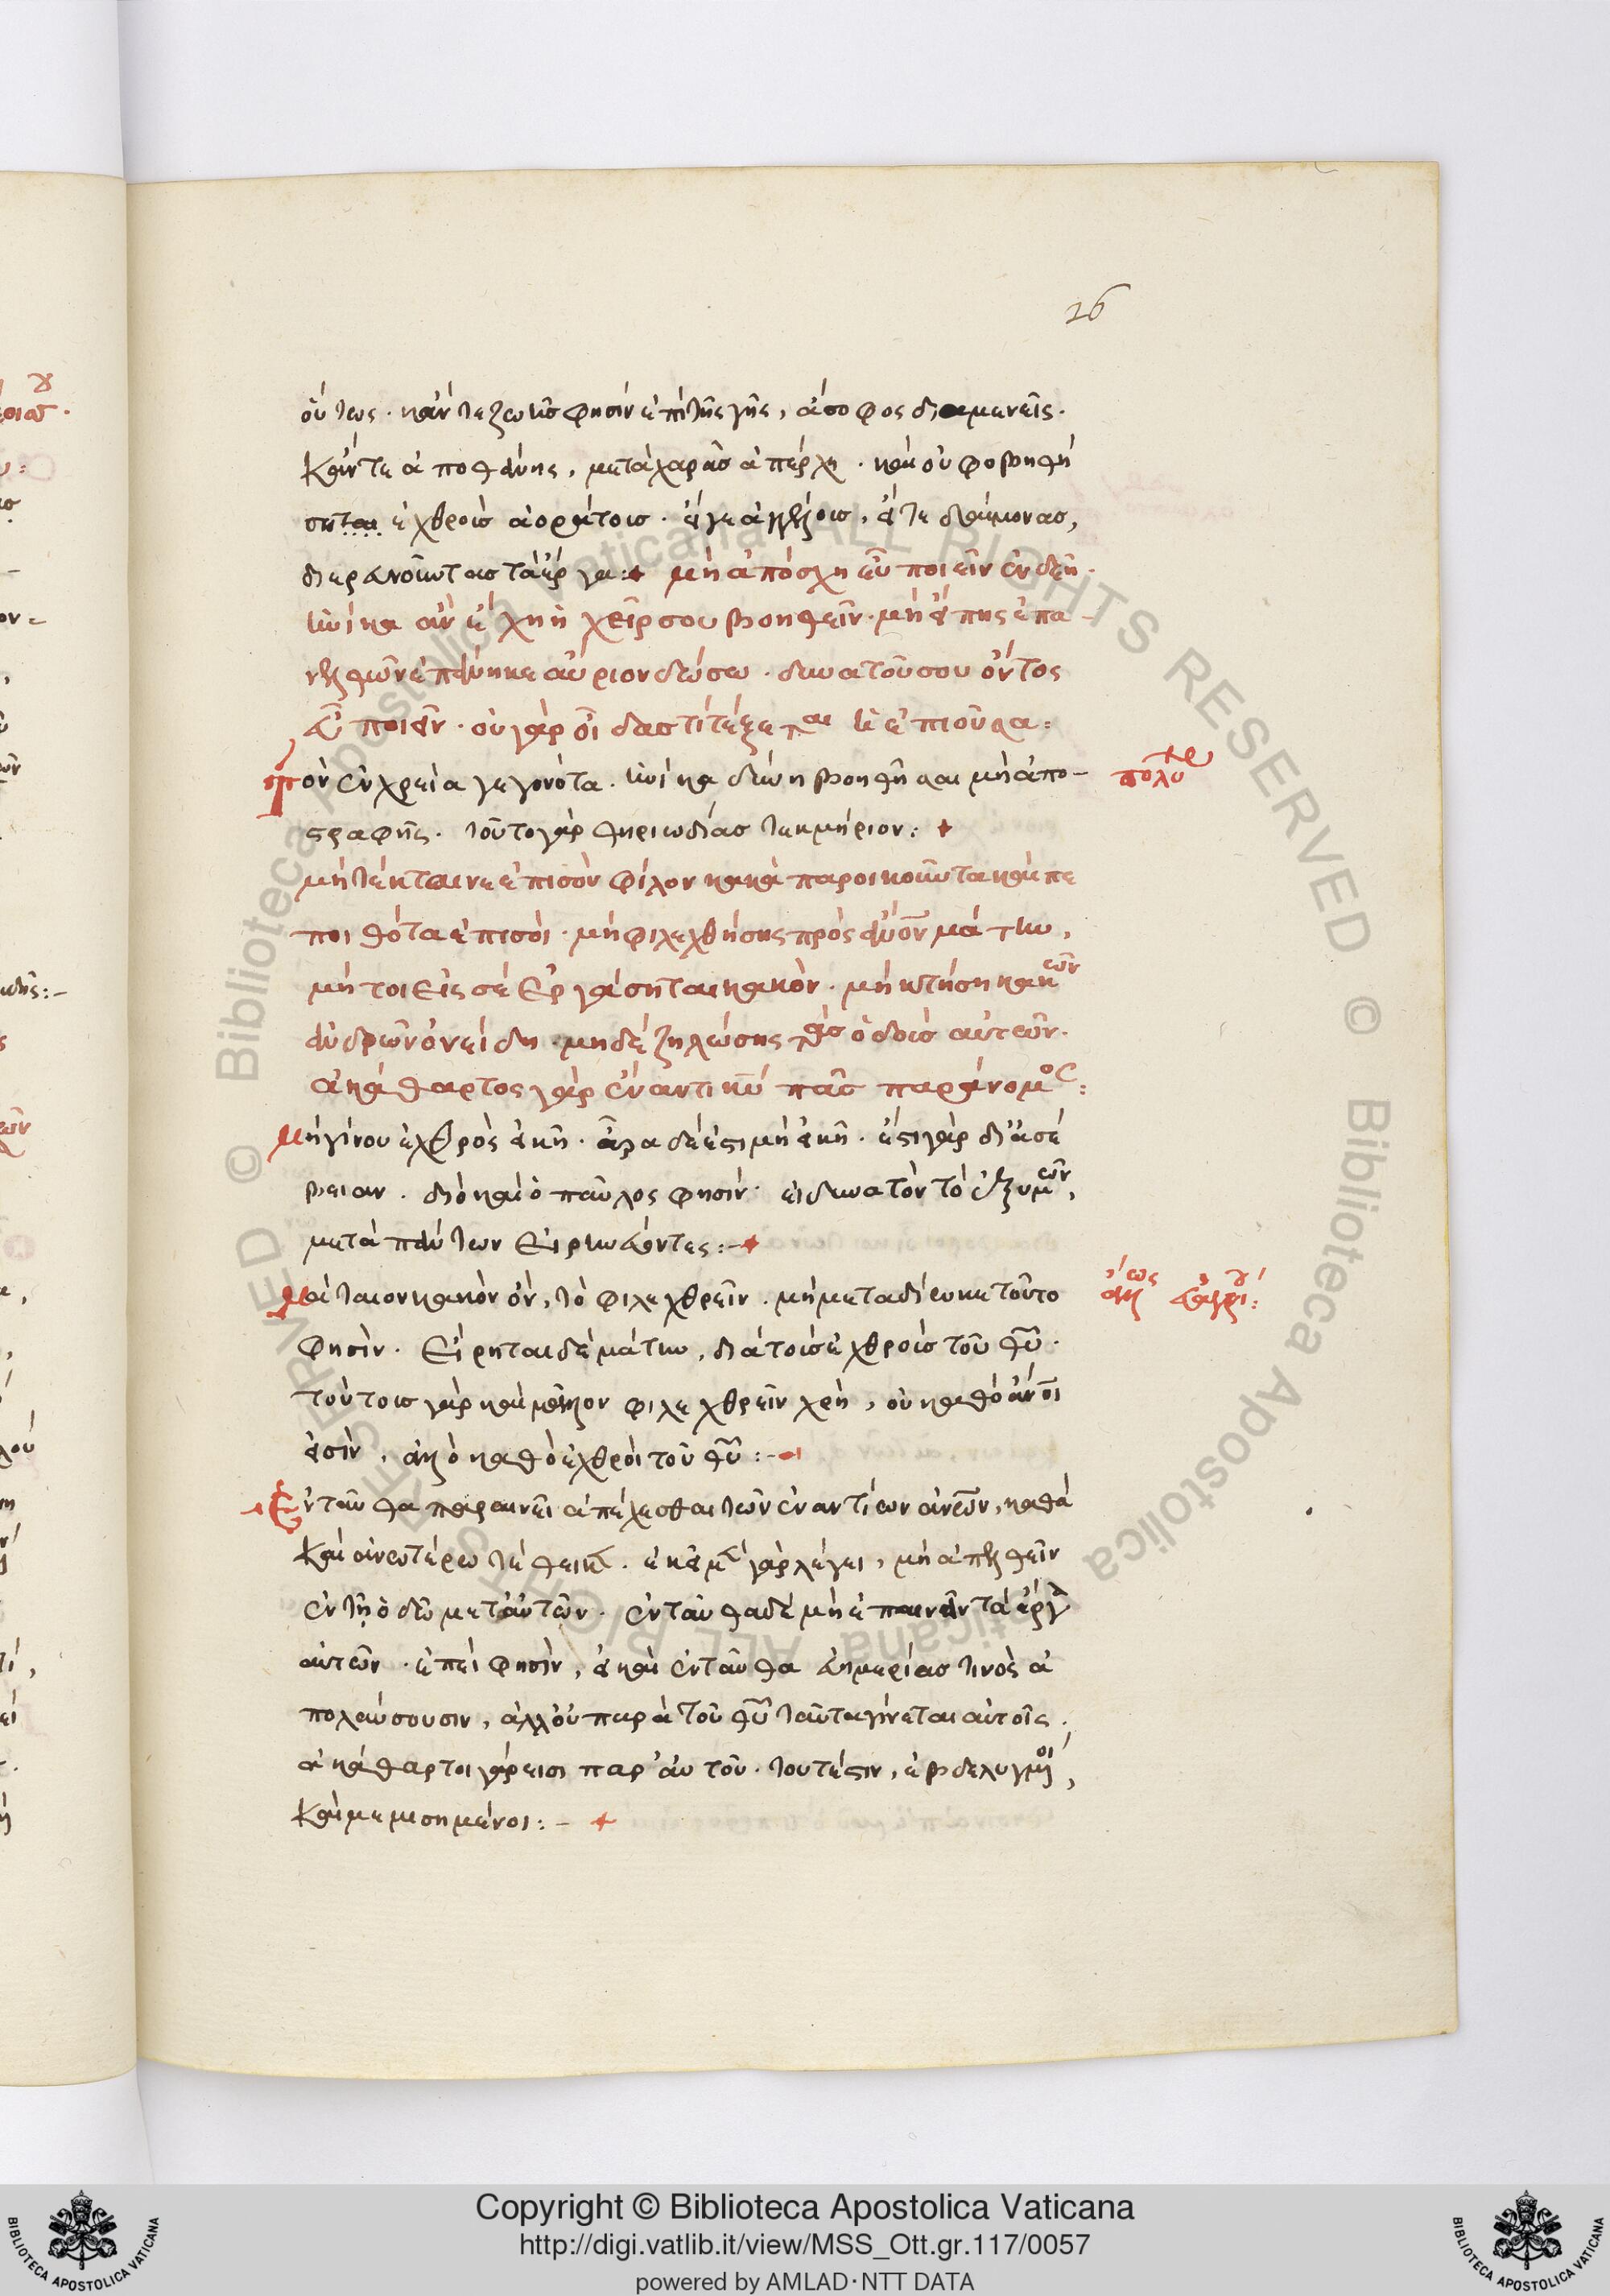 26
οὕτως. κἄν τε ζωῆς φησὶν ἐπὶ τῆς γῆς, ἄσοφος διαμενεῖς.
κἄν τε ἀποθάνης, μετὰ χαρᾶς ἀπέρχη. καὶ οὐ φοβηθή
σηται ἐχθροὺς ἀοράτους. εἴγε ἀγγέλους, εἴτε δαίμονας,
διερευνοῦντας τὰ ἔργα: μὴ ἀπόσχη εὖ ποιεῖν ἐνδεῆ.
ἡνίκα ἂν ἔχη ἡ χεῖρ σου βοηθεῖν. μὴ εἴπης ἐπα
νελθὼν ἐπάνηκε αὔριον δώσω. δυνατοῦ σου ὄντος
εὖ ποιεῖν. οὐ γὰρ οἶδας τί τέξεται ἡ ἐπιοῦσα:
τὸν ἐν χρεία γεγονότα. ἡνίκα δύνη βοηθῆσαι μὴ ἀπο-
πολυ
στραφῆς. τοῦτο γὰρ θηριωδίας τεκμήριον:
μὴ τέκταινε ἐπὶ σὸν φίλον κακὰ παροικοῦντα καὶ πε
ποιθότα ἐπὶ σοί. μὴ φιλεχθρήσης πρὸς ἄνον μάτην,
μή τοι εἰς σὲ ἐργάσηται κακόν. μὴ κτήση κακῶν
ἀνδρῶν ὀνείδη. μηδὲ ζηλώσης τὰς ὁδοὺς αὐτῶν.
ἀκάθαρτος γὰρ ἔναντι κυ πᾶς παράνομος:
μὴ γίνου ἐχθρὸς εἰκῆ. ἆρα δὲ ἔστι μὴ εἰκῆ. ἔστι γὰρ δι' ἀσέ
βειαν. διὸ καὶ ὁ παῦλος φησίν. εἰ δυνατὸν τὸ ἐξ υμῶν,
μετὰ πάντων εἰρηνεύοντες:-
μάταιον κακὸν ὄν, τὸ φιλεχθρεῖν. μὴ μεταδίωκε τοῦτο
φησίν. εἴρηται δὲ μάτην, διὰ τοὺς ἐχθροὺς τοῦ θυ.
τούτοις γὰρ καὶ μᾶλλον φιλεχθρεῖν χρή, οὐ καθὸ ἄνοι
εἰσίν, ἀλλὸ καθὸ ἐχθροὶ τοῦ θυ:-
ἐνταῦθα παραινεῖ ἀπέχεσθαι τῶν ἐναντίων ἀνῶν, καθὰ
καὶ ἀνωτέρω τέθεικε. ἐκεῖ μὲν γὰρ λέγει, μὴ ἀπελθεῖν
ἐν τῆ ὁδῶ μετ' αὐτῶν. ἐνταῦθα δὲ μὴ ἐπαινεῖν τὰ ἔργα
αὐτῶν. ἐπεὶ φησίν, εἰ καὶ ἐνταῦθα εὐημερίας τινὸς ἀ
πολαύσουσιν, ἀλλ' οὐ παρὰ τοῦ θυ ταῦτα γίνεται αὐτοῖς.
ἀκάθαρτοι γάρ εισι παρ' αὐτοῦ. τουτέστιν, ἐβδελυγμένοι,
καὶ μεμισημένοι:-
Copyright © Biblioteca Apostolica Vaticana
http://digi.vatlib.it/view/MSS_Ott.gr.117/0057
powered by AMLAD·NTT DATA
BIBLIOTECA APOSTOLICA VATICANA
BIBLIOTECA APOSTOLICA VATICANA
© Biblioteca Apostolica Vaticana ALL RIGHTS RESERVED
© Biblioteca Apostolica Vaticana ALL RIGHTS RESERVED